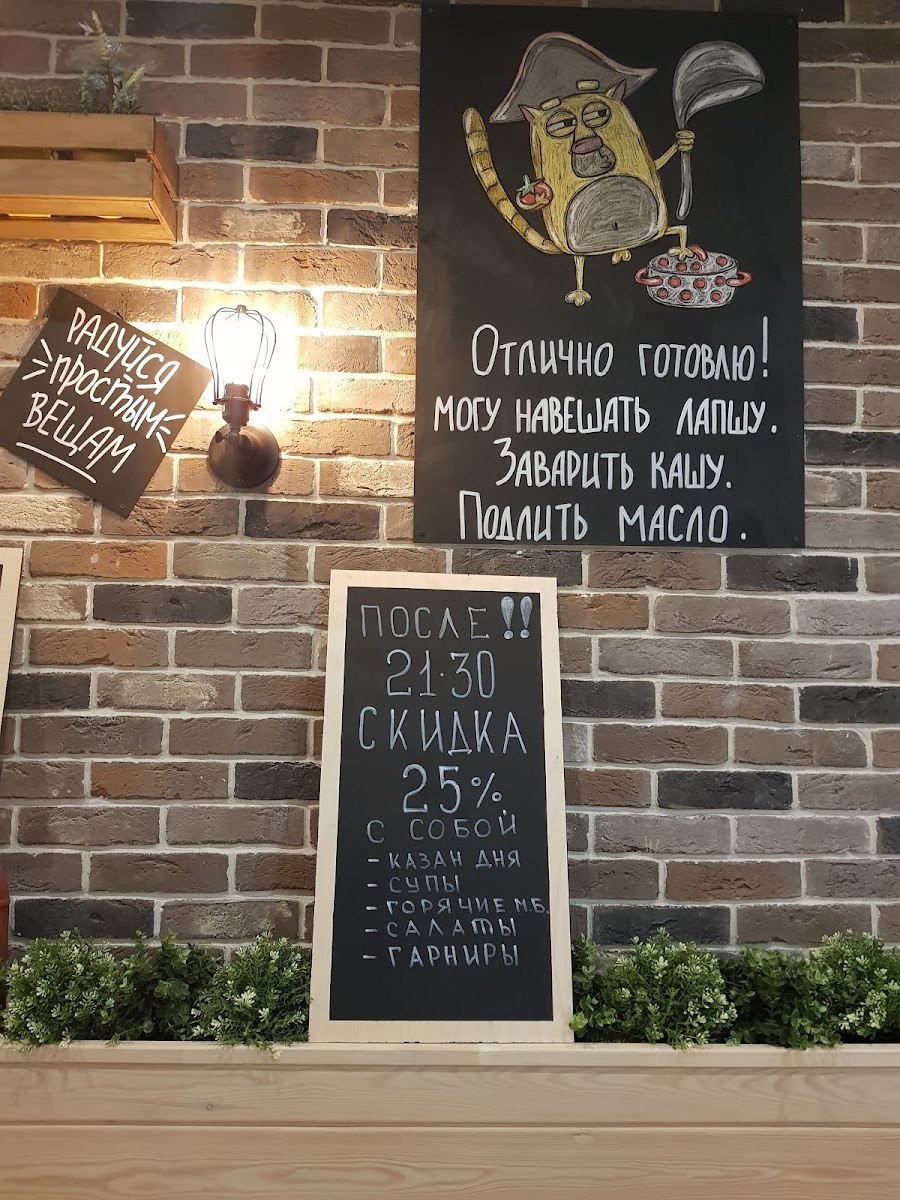 Отлично готовлю!
могу навешать лапшу.
Заварить кашу.
Подлить масло.
РАДУЙСЯ
простым
ВЕЩАМ
ПОСЛЕ !!
21.30
СКИДКА
25%
С СОБОЙ
- КАЗАН ДНЯ
- СУПЫ
- ГОРЯЧИЕ М.Б.
- САЛАТЫ
- ГАРНИРЫ